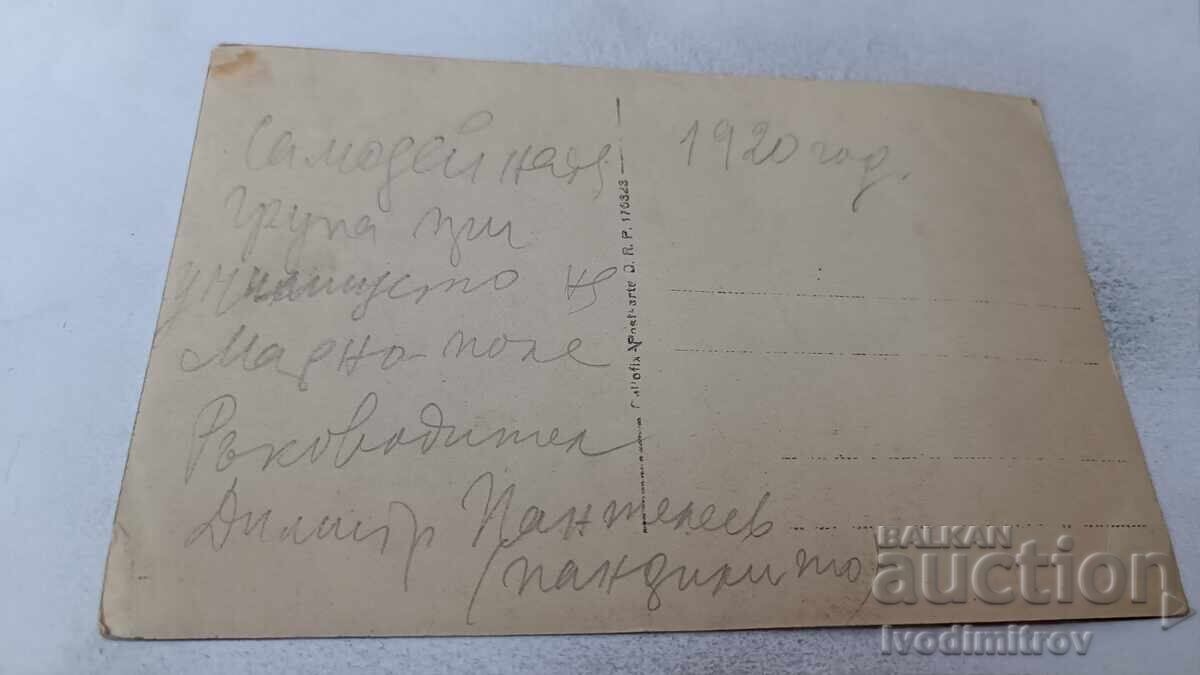 Самодейната
група при
училището на
Марно-поле
Ръководител
Димитър Пантелеев
(пандилито)
1920 год.
Postkarte D. R. P. 176323
BALKAN
auction
ivodimitrov